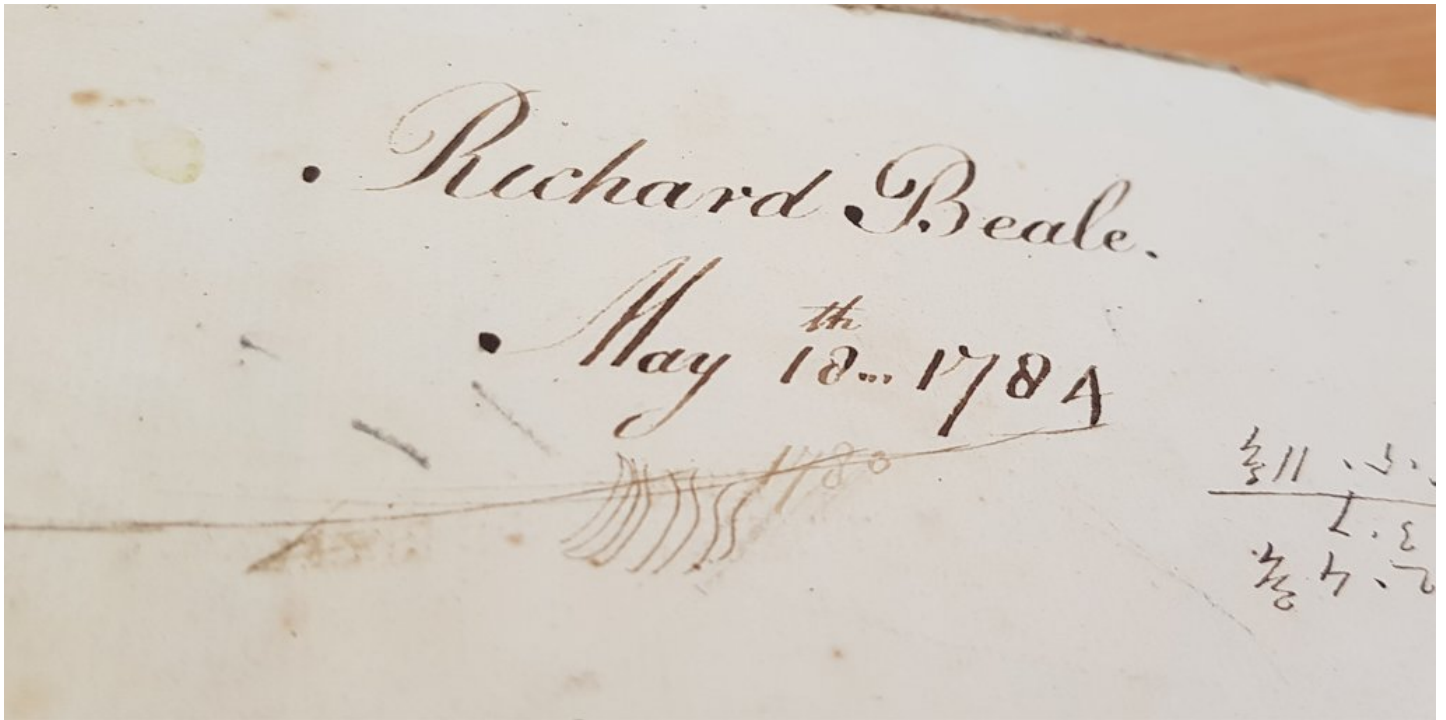 Richard Beale.
May 18th 1784
1780